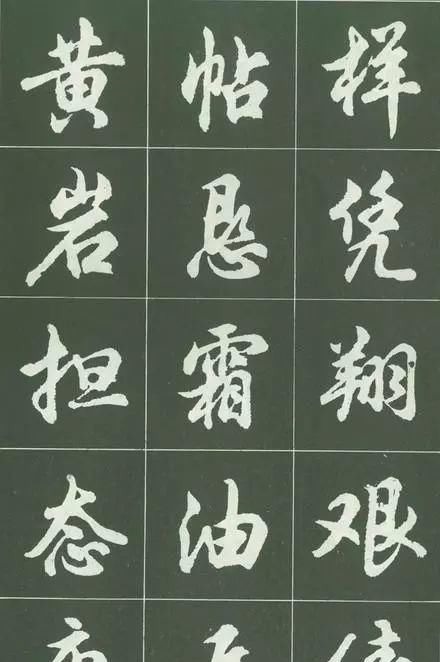 样凭翔艰
帖悬霜油
黄岩担态